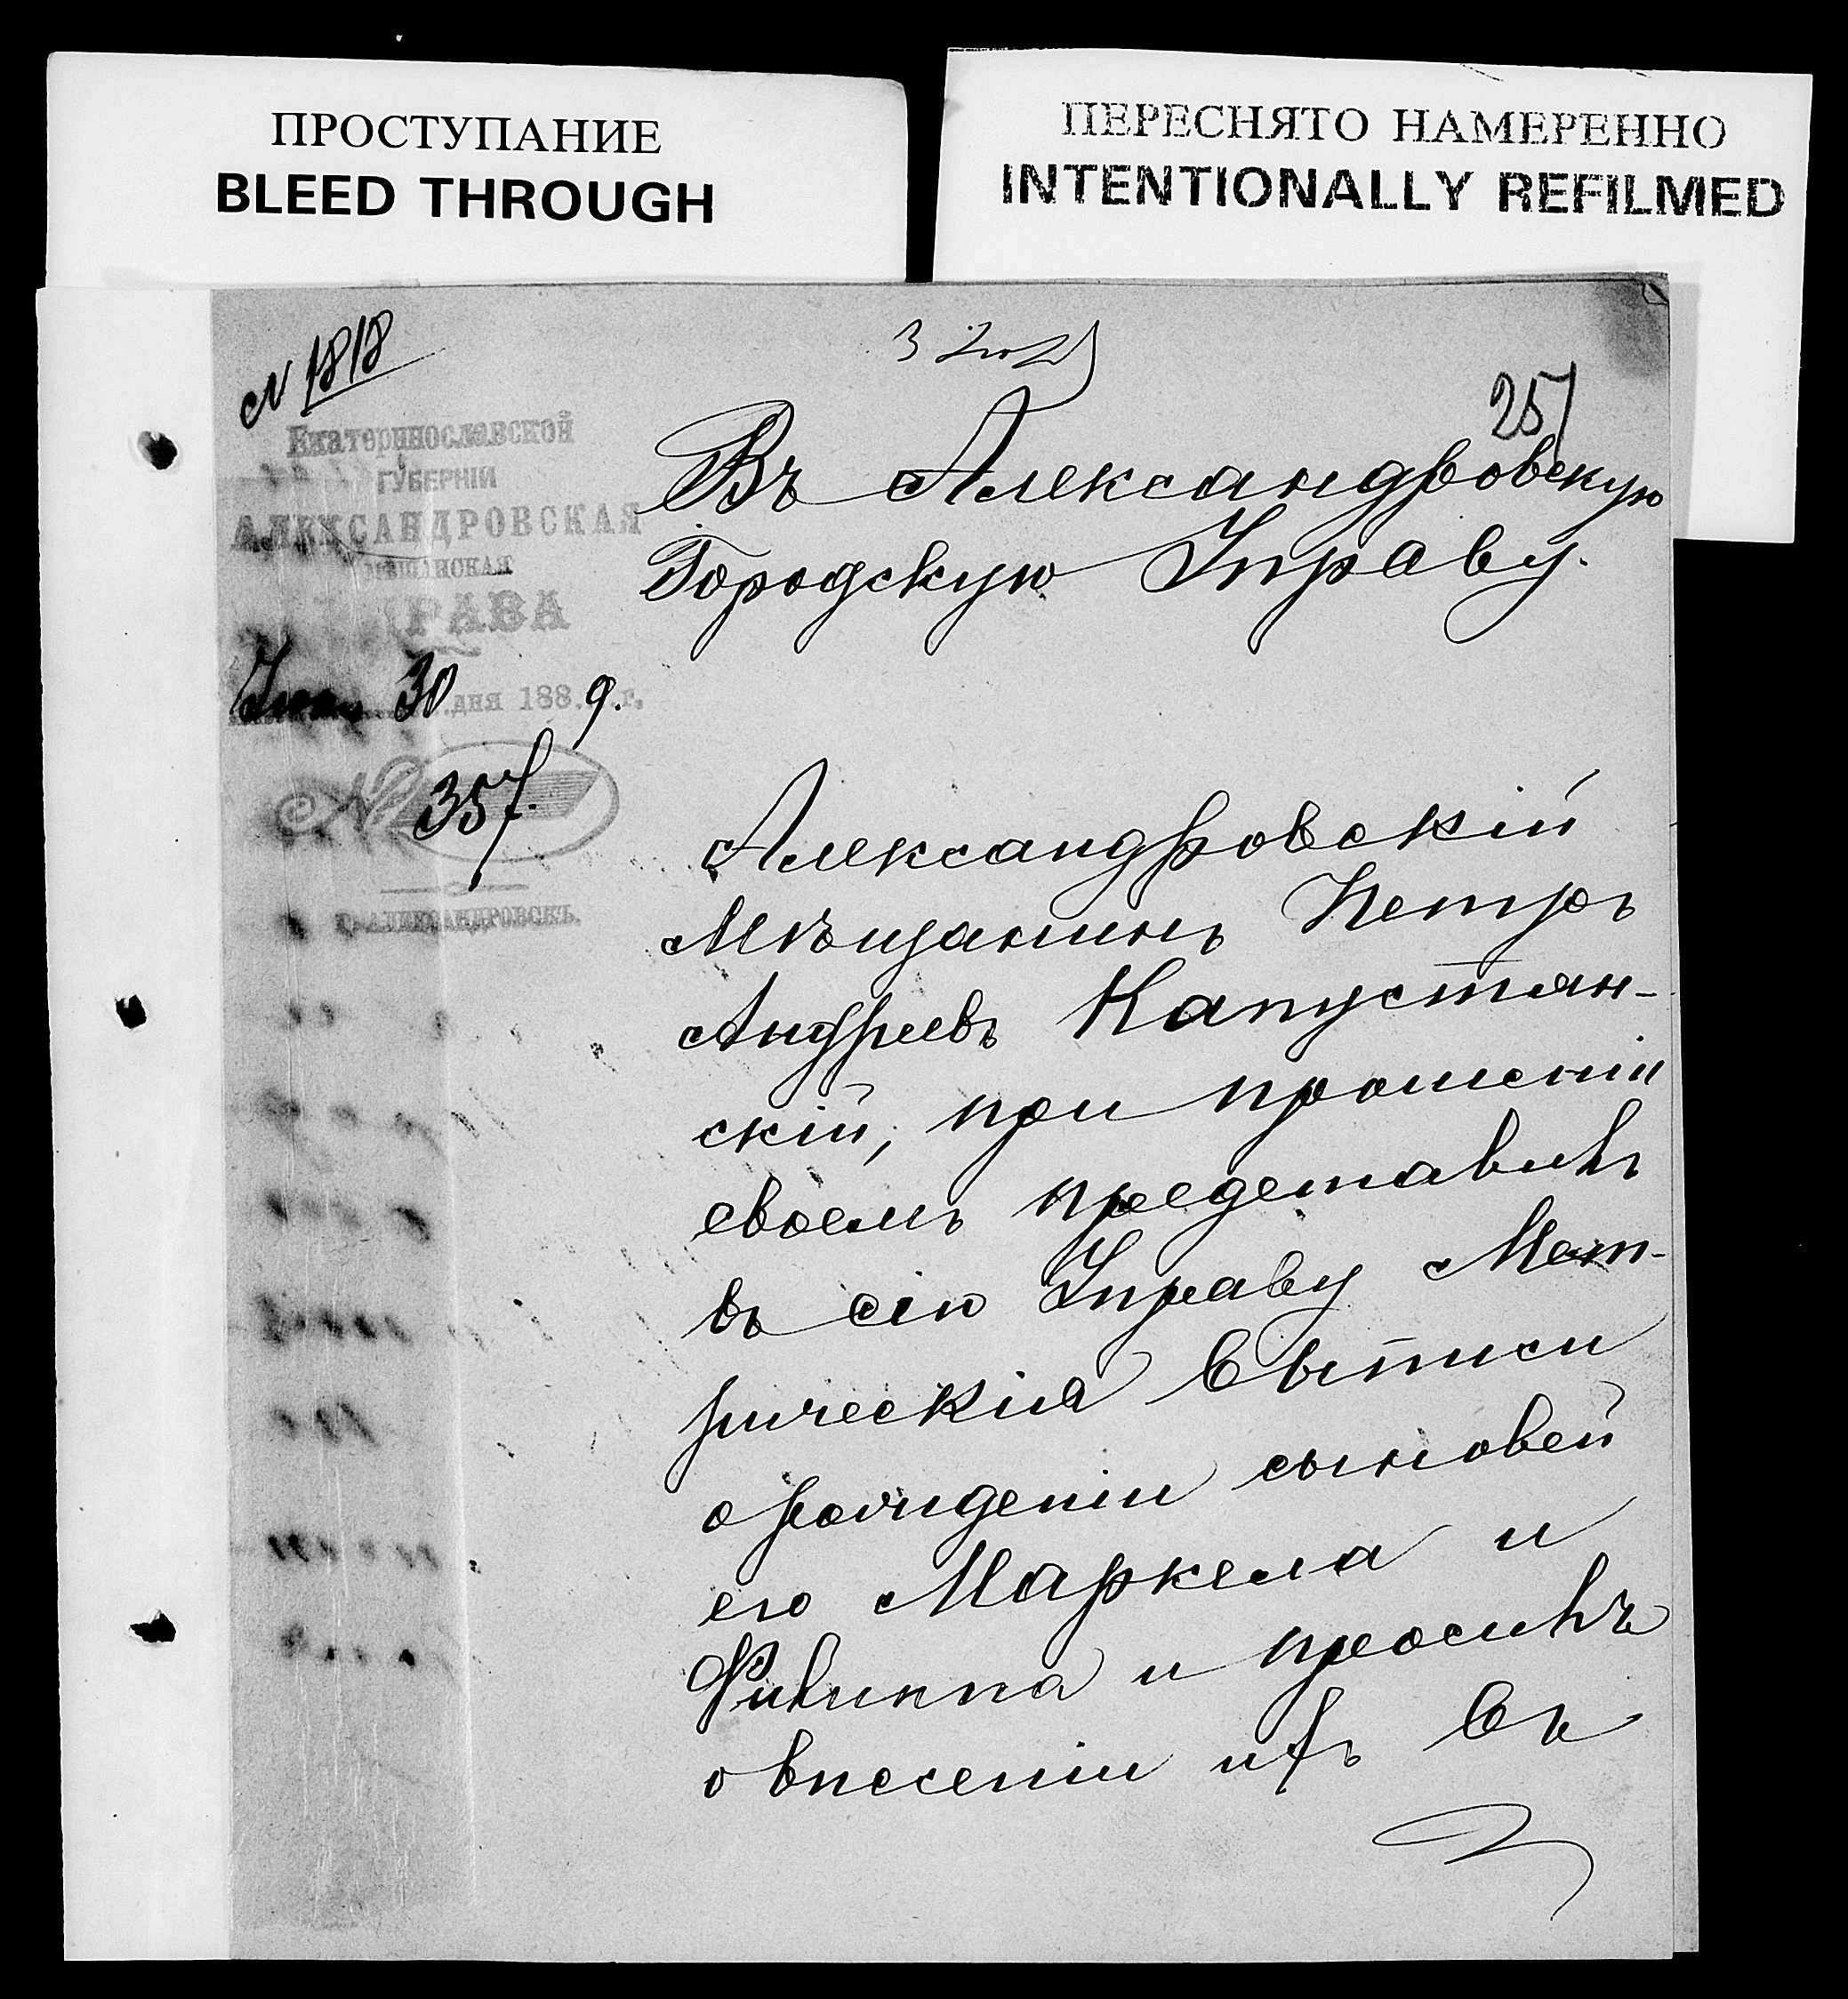 ПРОСТУПАНИЕ
BLEED THROUGH
ПЕРЕСНЯТО НАМЕРЕННО
INTENTIONALLY REFILMED
№ 1818
3
257
Екатеринославской
ГУБЕРНІИ
АЛЕКСАНДРОВСКАЯ
МѢЩАНСКАЯ
УПРАВА
30 дня 1889 г.
№ 357.
Г. АЛЕКСАНДРОВСКЪ.
Въ Александровскую
Городскую Управу.
Александровскій
Мѣщанинъ Петръ
Андреевъ Капустян-
скій, при прошеніи
своемъ представилъ
въ сію Управу Мет-
рическія выписи
о рожденіи сыновей
его Маркела и
Филиппа и проситъ
о внесеніи ихъ въ